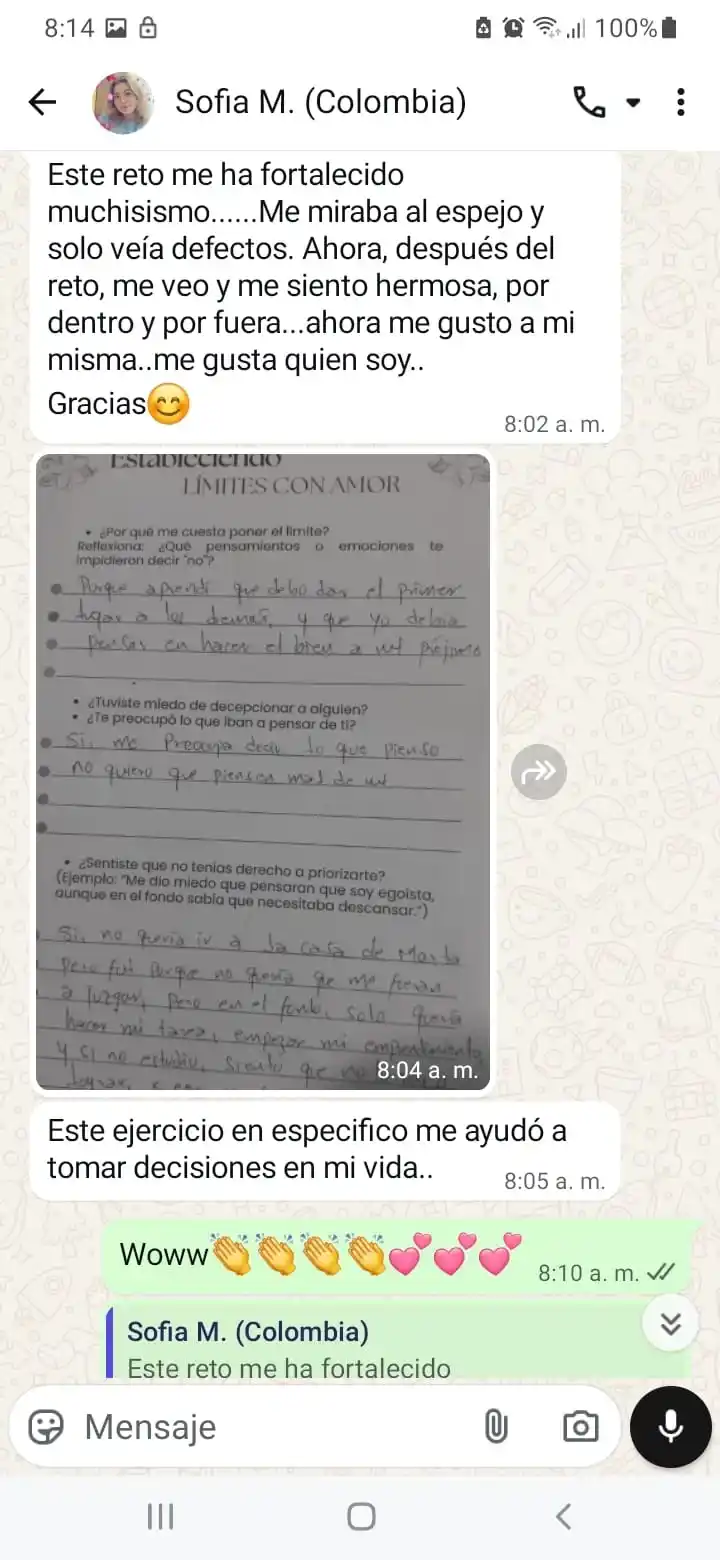 8:14 100%
Sofia M. (Colombia)
Este reto me ha fortalecido
muchisismo......Me miraba al espejo y
solo veía defectos. Ahora, después del
reto, me veo y me siento hermosa, por
dentro y por fuera...ahora me gusto a mi
misma..me gusta quien soy..
Gracias😊
8:02 a. m.
Estableciendo
LÍMITES CON AMOR
• ¿Por qué me cuesta poner el límite?
Reflexiona: ¿Qué pensamientos o emociones te
impidieron decir "no"?
Porque aprendí que debo dar el primer
lugar a los demás, y que yo debía
pensar en hacer el bien a mi prójimo
• ¿Tuviste miedo de decepcionar a alguien?
• ¿Te preocupó lo que iban a pensar de ti?
Si, me preocupa decir lo que pienso
no quiero que piensen mal de mi
• ¿Sentiste que no tenías derecho a priorizarte?
(Ejemplo: "Me dio miedo que pensaran que soy egoísta,
aunque en el fondo sabía que necesitaba descansar.")
Si, no quería ir a la casa de Marta
pero fui porque no quería que me fueran
a juzgar, pero en el fondo, solo quería
hacer mi tarea, empezar mi
y si no estudio, siento que no
8:04 a. m.
Este ejercicio en especifico me ayudó a
tomar decisiones en mi vida..
8:05 a. m.
Woww👏👏👏👏💕💕💕
8:10 a. m.
Sofia M. (Colombia)
Este reto me ha fortalecido
Mensaje